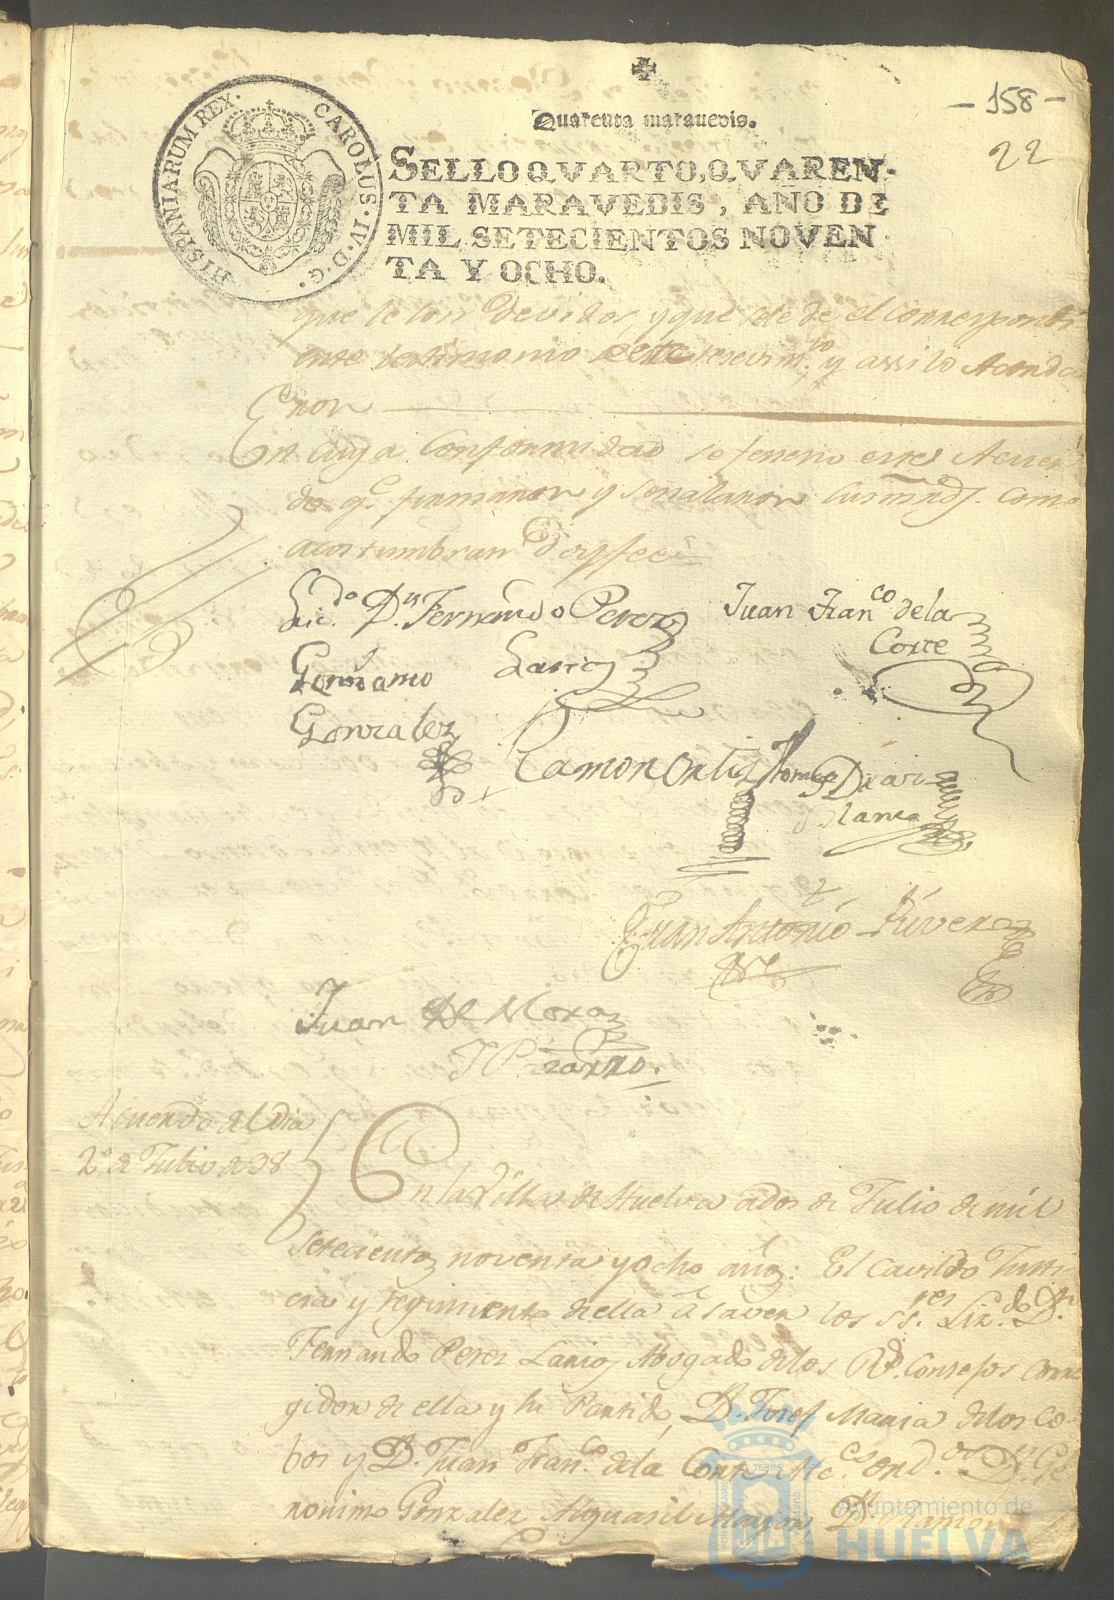 -158-
22
Quarenta maravedis.
HISPANIARUM REX. CAROLUS. IV. D. G.
SELLO QVARTO, QVAREN-
TA MARAVEDIS, AÑO DE
MIL SETECIENTOS NOVEN
TA Y OCHO.
que le son devidos, y que se le de el correspondi
ente testimonio y assi lo Acorda
En cuya Conformidad se fenecio este Acuer
do q.e firmaron y señalaron sus mrds. como
acostumbran
Lic.do D.n Fernando Perez
Larios
Juan Fran.co de la
Corte
Geronimo
Gonzalez
Ramon Ortiz
Juan Antonio Rivera
Juan de Mora
Acuerdo del Dia
2 de Julio de 98
En la Villa de Huelva a dos de Julio de mil
setecientos noventa y ocho años: El Cavildo Justi
cia y regimiento de ella a saver los ss.res Liz.do D.n
Fernando Perez Larios Abogado de los R.s Consejos corre
gidor de ella y su Partido, D.n Josef Maria de los Co
bos y D.n Juan Fran.co de la Corte D.n Ge
ronimo Gonzalez Alguasil Mayor, D.n Ramon
Ayuntamiento de
HUELVA